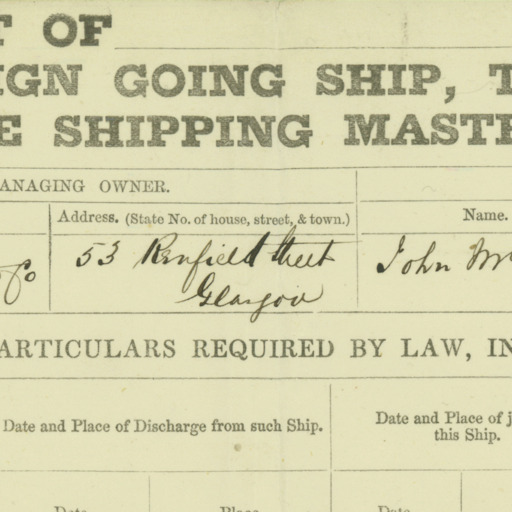 T OF
IGN GOING SHIP, T
E SHIPPING MASTE
ANAGING OWNER.
Address. (State No. of house, street, & town.)
Name.
53 Renfield Street
Glasgow
John
ARTICULARS REQUIRED BY LAW, IN
Date and Place of Discharge from such Ship.
Date and Place of j
this Ship.
Date
Place
Date